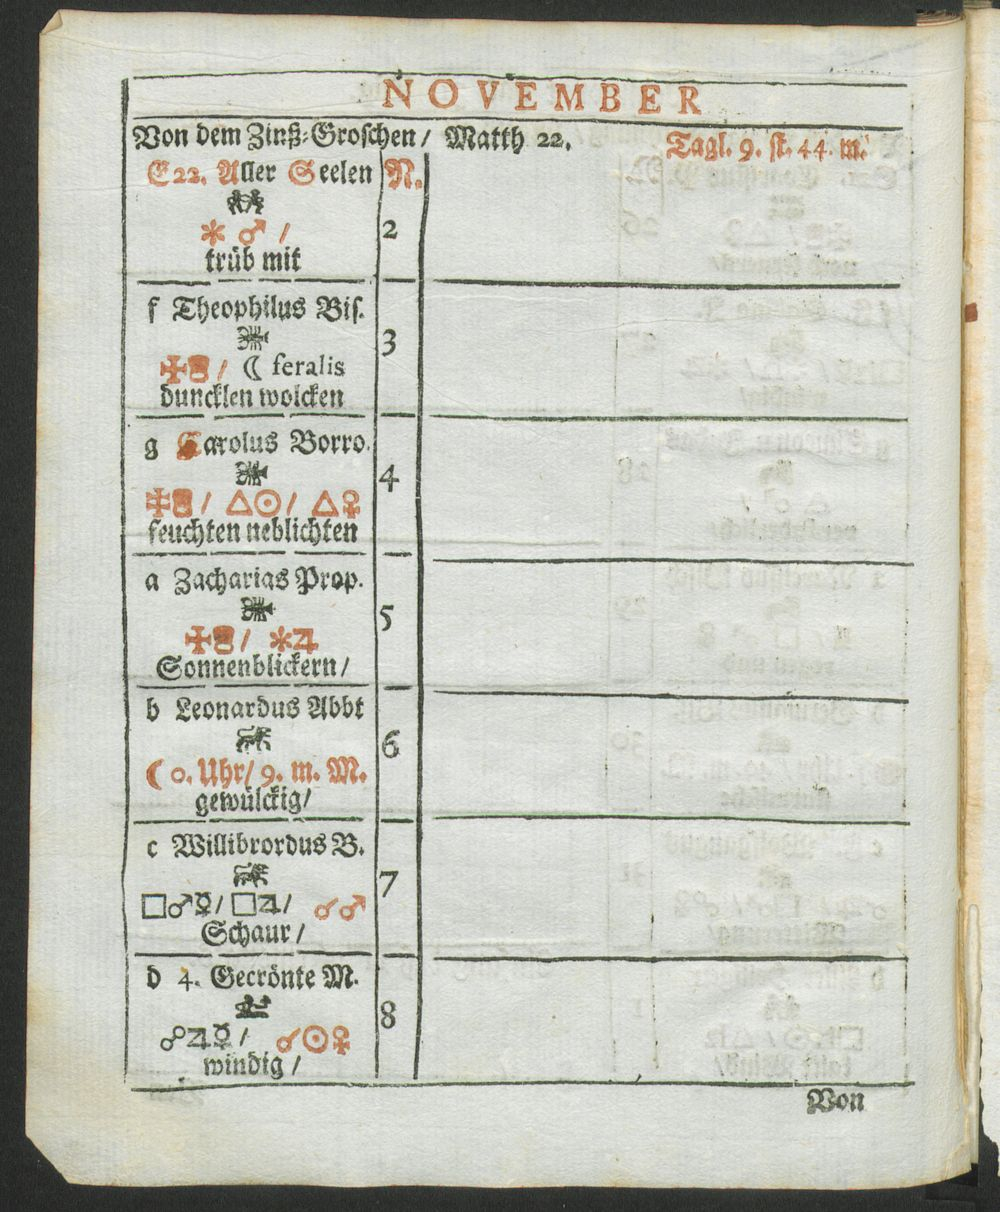 NOVEMBER
Von dem Zinß-Groschen / Matth 22. Tagl. 9. st. 44. m.
E 22. Aller Seelen N.
⚹ ♂ / 2
trüb mit
f Theophilus Bis.
3
/ ☾ feralis
duncklen wolcken
g Carolus Borro.
4
/ △☉/ △♀
feuchten neblichten
a Zacharias Prop.
5
/ ⚹♃
Sonnenblickern /
b Leonardus Abbt
6
☾ 0. Uhr/ 9. m. M.
gewülckig/
c Willibrordus B.
7
□♂☿/ □♃/ ☌♂
Schaur /
d 4. Gecrönte M.
8
☍♃☿/ ☌☉♀
windig /
Von